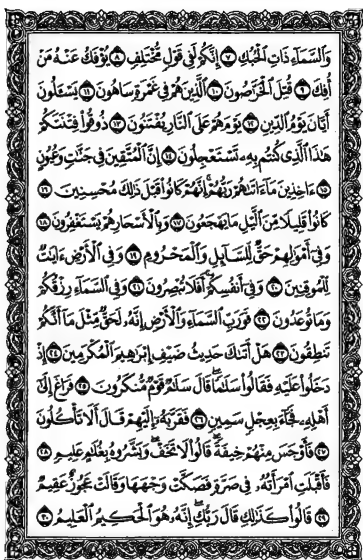 وَالسَّمَاءِ ذَاتِ الْحُبُكِ ٧ إِنَّكُمْ لَفِي قَوْلٍ مُخْتَلِفٍ ٨ يُؤْفَكُ عَنْهُ مَنْ
أُفِكَ ٩ قُتِلَ الْخَرَّاصُونَ ١٠ الَّذِينَ هُمْ فِي غَمْرَةٍ سَاهُونَ ١١ يَسْـَٔلُونَ
أَيَّانَ يَوْمُ الدِّينِ ١٢ يَوْمَ هُمْ عَلَى النَّارِ يُفْتَنُونَ ١٣ ذُوقُوا فِتْنَتَكُمْ
هَٰذَا الَّذِي كُنْتُمْ بِهِ تَسْتَعْجِلُونَ ١٤ إِنَّ الْمُتَّقِينَ فِي جَنَّاتٍ وَعُيُونٍ
١٥ ءَاخِذِينَ مَا ءَاتَاهُمْ رَبُّهُمْ إِنَّهُمْ كَانُوا قَبْلَ ذَٰلِكَ مُحْسِنِينَ ١٦
كَانُوا قَلِيلًا مِنَ الَّيْلِ مَا يَهْجَعُونَ ١٧ وَبِالْأَسْحَارِ هُمْ يَسْتَغْفِرُونَ ١٨
وَفِي أَمْوَالِهِمْ حَقٌّ لِلسَّائِلِ وَالْمَحْرُومِ ١٩ وَفِي الْأَرْضِ ءَايَاتٌ
لِلْمُوقِنِينَ ٢٠ وَفِي أَنْفُسِكُمْ أَفَلَا تُبْصِرُونَ ٢١ وَفِي السَّمَاءِ رِزْقُكُمْ
وَمَا تُوعَدُونَ ٢٢ فَوَرَبِّ السَّمَاءِ وَالْأَرْضِ إِنَّهُ لَحَقٌّ مِثْلَ مَا أَنَّكُمْ
تَنْطِقُونَ ٢٣ هَلْ أَتَاكَ حَدِيثُ ضَيْفِ إِبْرَاهِيمَ الْمُكْرَمِينَ ٢٤ إِذْ
دَخَلُوا عَلَيْهِ فَقَالُوا سَلَامًا قَالَ سَلَامٌ قَوْمٌ مُنْكَرُونَ ٢٥ فَرَاغَ إِلَىٰ
أَهْلِهِ فَجَاءَ بِعِجْلٍ سَمِينٍ ٢٦ فَقَرَّبَهُ إِلَيْهِمْ قَالَ أَلَا تَأْكُلُونَ
٢٧ فَأَوْجَسَ مِنْهُمْ خِيفَةً قَالُوا لَا تَخَفْ وَبَشَّرُوهُ بِغُلَامٍ عَلِيمٍ ٢٨
فَأَقْبَلَتِ امْرَأَتُهُ فِي صَرَّةٍ فَصَكَّتْ وَجْهَهَا وَقَالَتْ عَجُوزٌ عَقِيمٌ
٢٩ قَالُوا كَذَٰلِكِ قَالَ رَبُّكِ إِنَّهُ هُوَ الْحَكِيمُ الْعَلِيمُ ٣٠